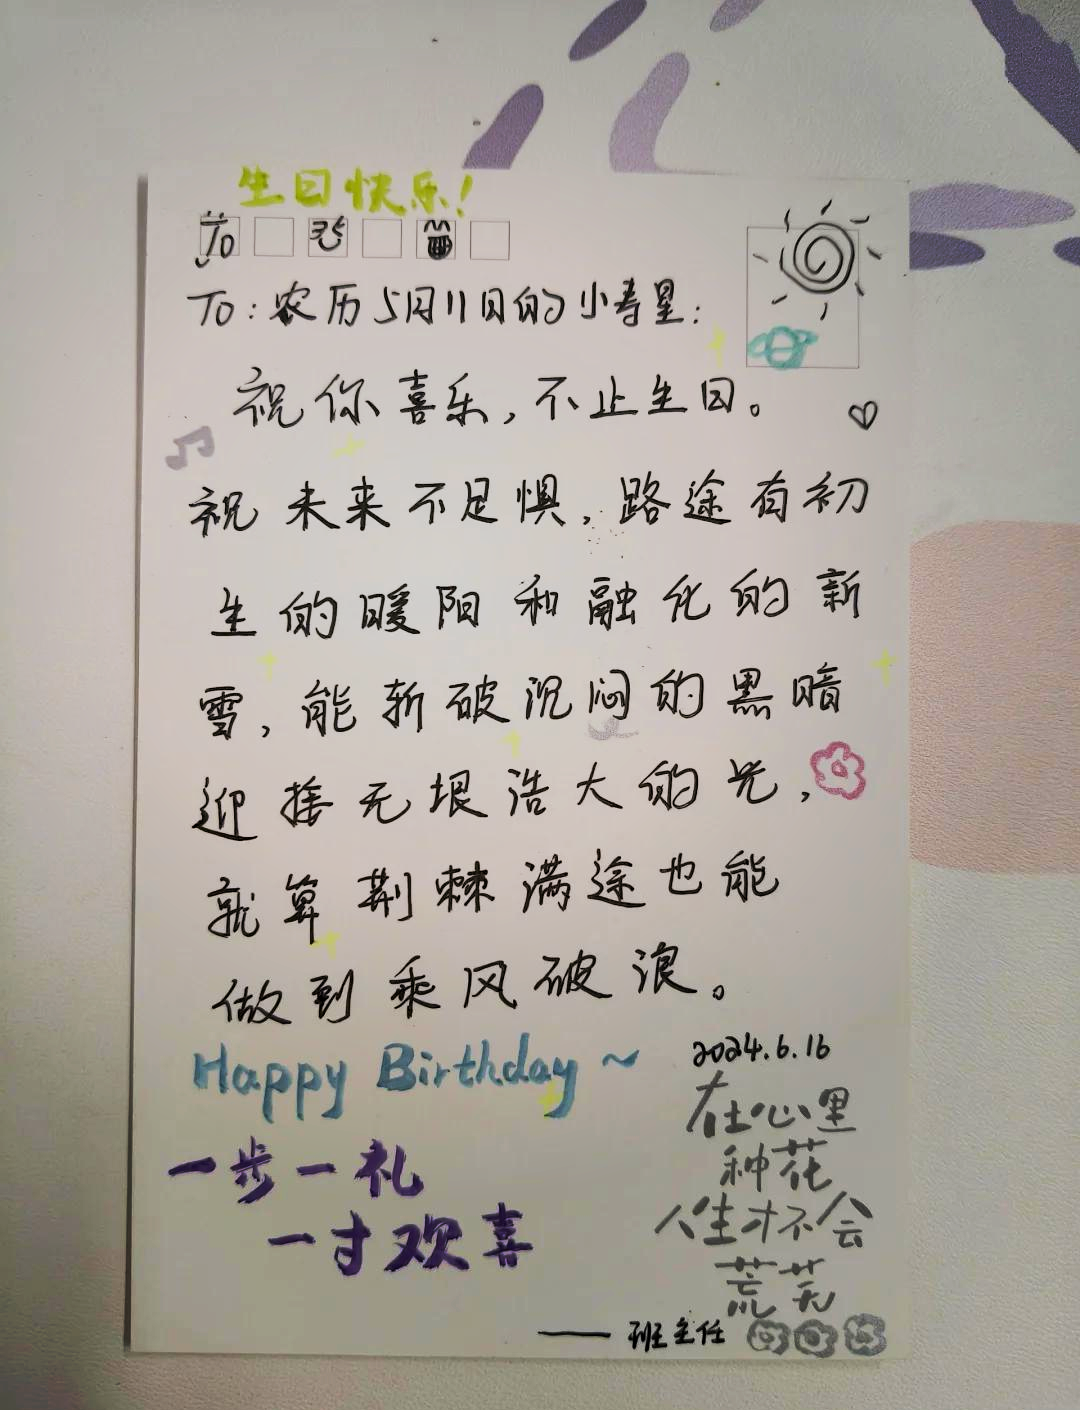 生日快乐!
To
To:农历5月11日的小寿星:
祝你喜乐,不止生日。
祝未来不足惧,路途有初
生的暖阳和融化的新
雪,能斩破沉闷的黑暗
迎接无垠浩大的光,
就算荆棘满途也能
做到乘风破浪。
Happy Birthday~
2024.6.16
在心里
种花
人生才不会
荒芜
一步一礼
一寸欢喜
——班主任